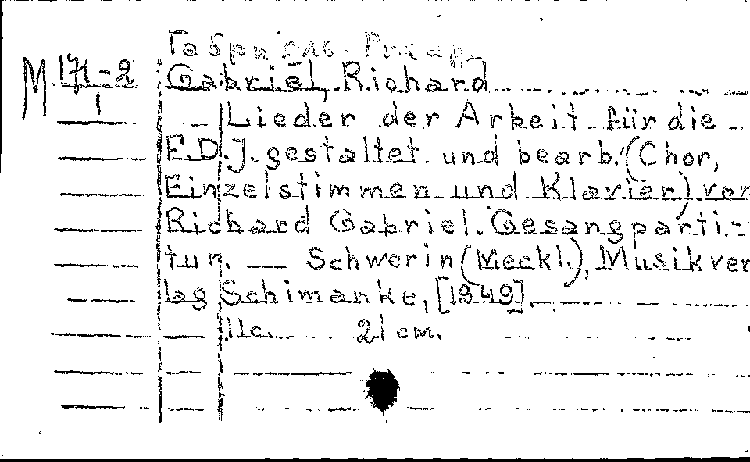 M 171-2
1
Габриэль Рихард
Gabriel, Richard
- Lieder der Arbeit für die
F.D.J. gestaltet und bearb. (Chor,
Einzelstimmen und Klavier) von
Richard Gabriel. Gesangparti-
tur. — Schwerin (Meckl.), Musikver
lag Schimanke, [1949].
11c. 21 cm.